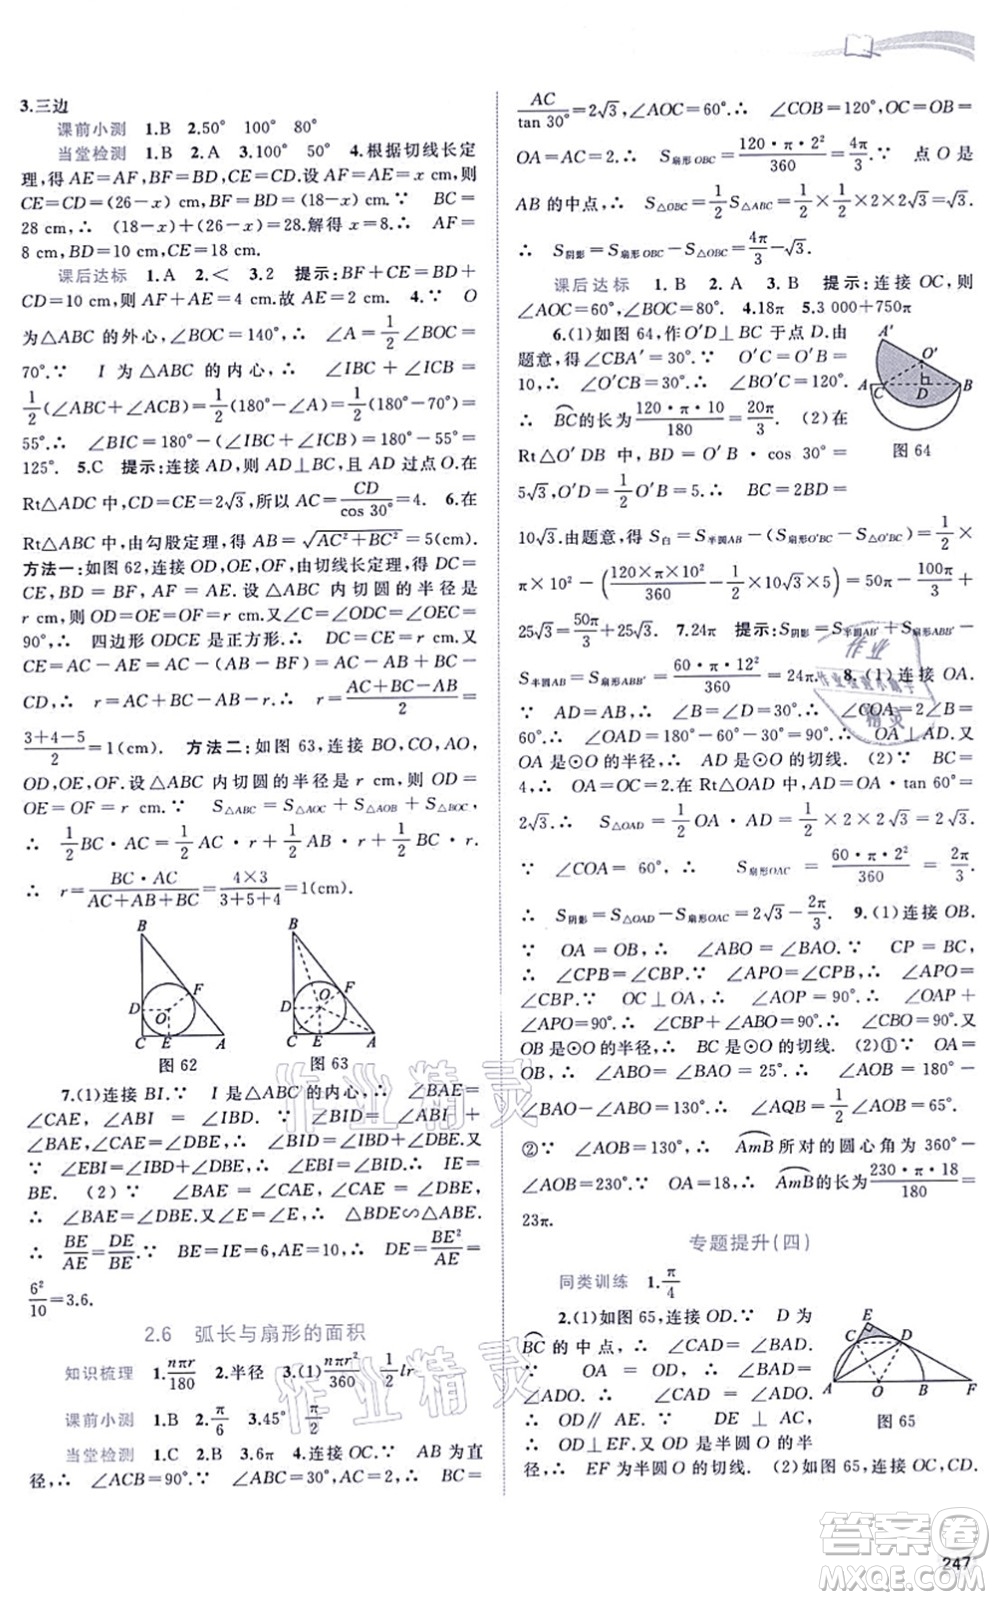 3.三边
课前小测 1.B 2.50° 100° 80°
当堂检测 1.B 2.A 3.100° 50° 4.根据切线长定
理,得 AE=AF,BF=BD,CE=CD.设 AF=AE=x cm,则
CE=CD=(26-x)cm,BF=BD=(18-x)cm.∵ BC=
28 cm,∴ (18-x)+(26-x)=28.解得 x=8.∴ AF=
8 cm,BD=10 cm,CE=18 cm.
课后达标 1.A 2.< 3.2 提示:BF+CE=BD+
CD=10 cm,则 AF+AE=4 cm.故 AE=2 cm. 4.∵ O
为△ABC 的外心,∠BOC=140°,∴ ∠A=1/2∠BOC=
70°.∵ I 为△ABC 的内心,∴ ∠IBC+∠ICB=
1/2(∠ABC+∠ACB)=1/2(180°-∠A)=1/2(180°-70°)=
55°.∴ ∠BIC=180°-(∠IBC+∠ICB)=180°-55°=
125°. 5.C 提示:连接 AD,则 AD⊥BC,且 AD 过点 O.在
Rt△ADC 中,CD=CE=2√3,所以 AC=CD/cos 30°=4. 6.在
Rt△ABC 中,由勾股定理,得 AB=√(AC²+BC²)=5(cm).
方法一:如图 62,连接 OD,OE,OF,由切线长定理,得 DC=
CE,BD=BF,AF=AE.设△ABC 内切圆的半径是
r cm,则 OD=OE=OF=r cm.又∠C=∠ODC=∠OEC=
90°,∴ 四边形 ODCE 是正方形.∴ DC=CE=OD=r.又
CE=AC-AE=AC-AF=AC-(AB-BF)=AC-AB+
BD=AC-AB+BC-CD=AC-AB+BC-r,∴ r=(AC+BC-AB)/2=
(3+4-5)/2=1(cm). 方法二:如图 63,连接 BO,CO,AO,
OD,OE,OF.设△ABC 内切圆的半径是 r cm,则 OD=
OE=OF=r cm.∵ S△ABC=S△AOC+S△AOB+S△BOC,
∴ 1/2BC·AC=1/2AC·r+1/2AB·r+1/2BC·r.
∴ r=BC·AC/(AC+AB+BC)=4×3/(3+5+4)=1(cm)
B
F
D
O
C E A
图 62
B
F
O
D
C E A
图 63
7.(1)连接 BI.∵ I 是△ABC 的内心,∴ ∠BAE=
∠CAE,∠ABI=∠IBC.∵ ∠BIE=∠BAE+
∠ABI=∠CAE+∠IBC,∠CAE=∠DBE,∴
∠EBI=∠IBD+∠DBE,∴ ∠BIE=∠EBI.∴ IE=
BE. (2)∵ ∠BAE=∠CAE,∠CAE=∠DBE,
∴ ∠BAE=∠DBE.又∠E=∠E,∴ △BDE∽△ABE.
∴ BE/AE=DE/BE.∵ BE=IE=6,AE=10,∴ DE=BE²/AE=
6²/10=3.6.
2.6 弧长与扇形的面积
知识梳理 1.nπr/180 2.半径 3.(1)nπr²/360 1/2lr
课前小测 1.B 2.π/6 3.45° π/2
当堂检测 1.C 2.B 3.6π 4.连接 OC.∵ AB 为直
径,∴ ∠ACB=90°.∵ ∠ABC=30°,AC=2,∴ BC=
AC/tan 30°=2√3,∠AOC=60°.∴ ∠COB=120°,OC=OB=
OA=AC=2.∴ S扇形OBC=120·π·2²/360=4π/3.∵ 点 O 是
AB 的中点,∴ S△OBC=1/2S△ABC=1/2×1/2×2×2√3=√3.
∴ S阴影=S扇形OBC-S△OBC=4π/3-√3.
课后达标 1.B 2.A 3.B 提示:连接 OC,则
∠AOC=60°,∠BOC=120°. 4.18π 5.3 000+750π
6.(1)如图 64,作 O′D⊥BC 于点 D.由
题意,得∠CBA′=30°.∵ O′C=O′B=
10,∴ ∠C=30°.∴ ∠BO′C=120°.
∴ BC的长为120·π·10/180=20π/3. (2)在
Rt△O′DB 中,BD=O′B·cos 30°=
5√3,O′D=1/2O′B=5.∴ BC=2BD=
10√3.由题意,得 S白=S半圆AB-(S扇形O′BC-S△O′BC)=1/2×
π×10²-(120×π×10²/360-1/2×10√3×5)=50π-100π/3+
25√3=50π/3+25√3. 7.24π 提示:S阴影=S半圆AB′+S扇形ABB′-
S半圆AB=S扇形ABB′=60·π·12²/360=24π. 8.(1)连接 OA.
∵ AD=AB,∴ ∠B=∠D=30°.∴ ∠COA=2∠B=
60°.∴ ∠OAD=180°-60°-30°=90°.∴ OA⊥AD.又 OA
是⊙O 的半径,∴ AD 是⊙O 的切线. (2)∵ BC=
4,∴ OA=OC=2.在 Rt△OAD 中,AD=OA·tan 60°=
2√3.∴ S△OAD=1/2OA·AD=1/2×2×2√3=2√3.
∵ ∠COA=60°,∴ S扇形OAC=60·π·2²/360=2π/3.
∴ S阴影=S△OAD-S扇形OAC=2√3-2π/3. 9.(1)连接 OB.
∵ OA=OB,∴ ∠ABO=∠BAO.∵ CP=BC,
∴ ∠CPB=∠CBP.∵ ∠APO=∠CPB,∴ ∠APO=
∠CBP.∵ OC⊥OA,∴ ∠AOP=90°.∴ ∠OAP+
∠APO=90°.∴ ∠CBP+∠ABO=90°.∴ ∠CBO=90°.又
OB 是⊙O 的半径,∴ BC 是⊙O 的切线. (2)①∵ OA=
OB,∴ ∠ABO=∠BAO=25°.∴ ∠AOB=180°-
∠BAO-∠ABO=130°.∴ ∠AQB=1/2∠AOB=65°.
②∵ ∠AOB=130°,∴ AmB所对的圆心角为 360°-
∠AOB=230°.∵ OA=18,∴ AmB的长为230·π·18/180=
23π.
A′
O′
A C D B
图 64
专题提升(四)
同类训练 1.π/4
2.(1)如图 65,连接 OD.∵ D 为
BC的中点,∴ ∠CAD=∠BAD=
∵ OA=OD,∴ ∠BAD=∠ADO.
∴ ∠CAD=∠ADO.∴ OD∥AE.∵ DE⊥AC,∴
OD⊥EF.又 OD 是半圆 O 的半
径,∴ EF 为半圆 O 的切线. (2)如图 65,连接 OC,CD.
E
C D
A O B F
图 65
作业精灵
答案圈
MXQE.COM
247